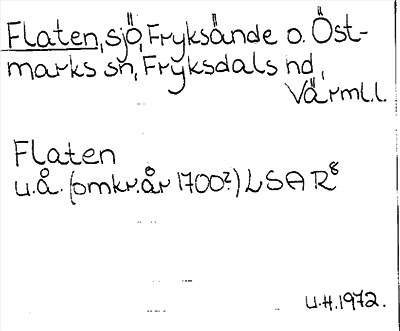 Flaten, sjö, Fryksände o. Öst-
marks sn, Fryksdals hd,
Värml.l.
Flaten
u.å. (omkr.år 1700?) LSAR⁸
U.H.1972.